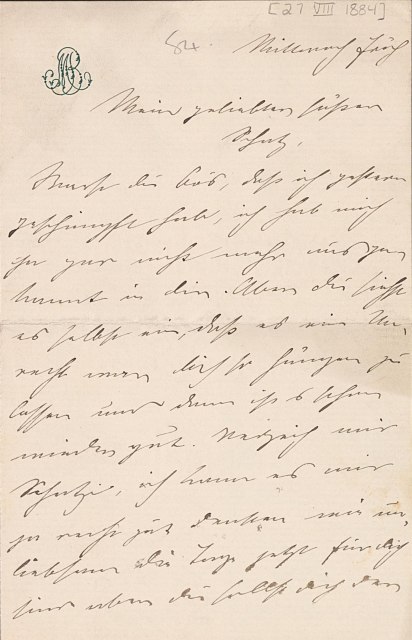 [27 VIII 1884]
84.
Mittwoch früh
MB
Mein geliebter süßer
Schatz,
Warst du bös, daß ich gestern
geschimpft hab, ich hab mich
ja gar nicht mehr ausge
kannt in dir. Aber du siehst
es selbst ein, daß es ein Un-
recht war dich so zu
lassen und dann ist's schon
wieder gut. Verzeih mir
Schatzi, ich kann es mir
ja recht gut denken wie un-
liebsam die Tage jetzt für dich
sind aber du sollst dich den